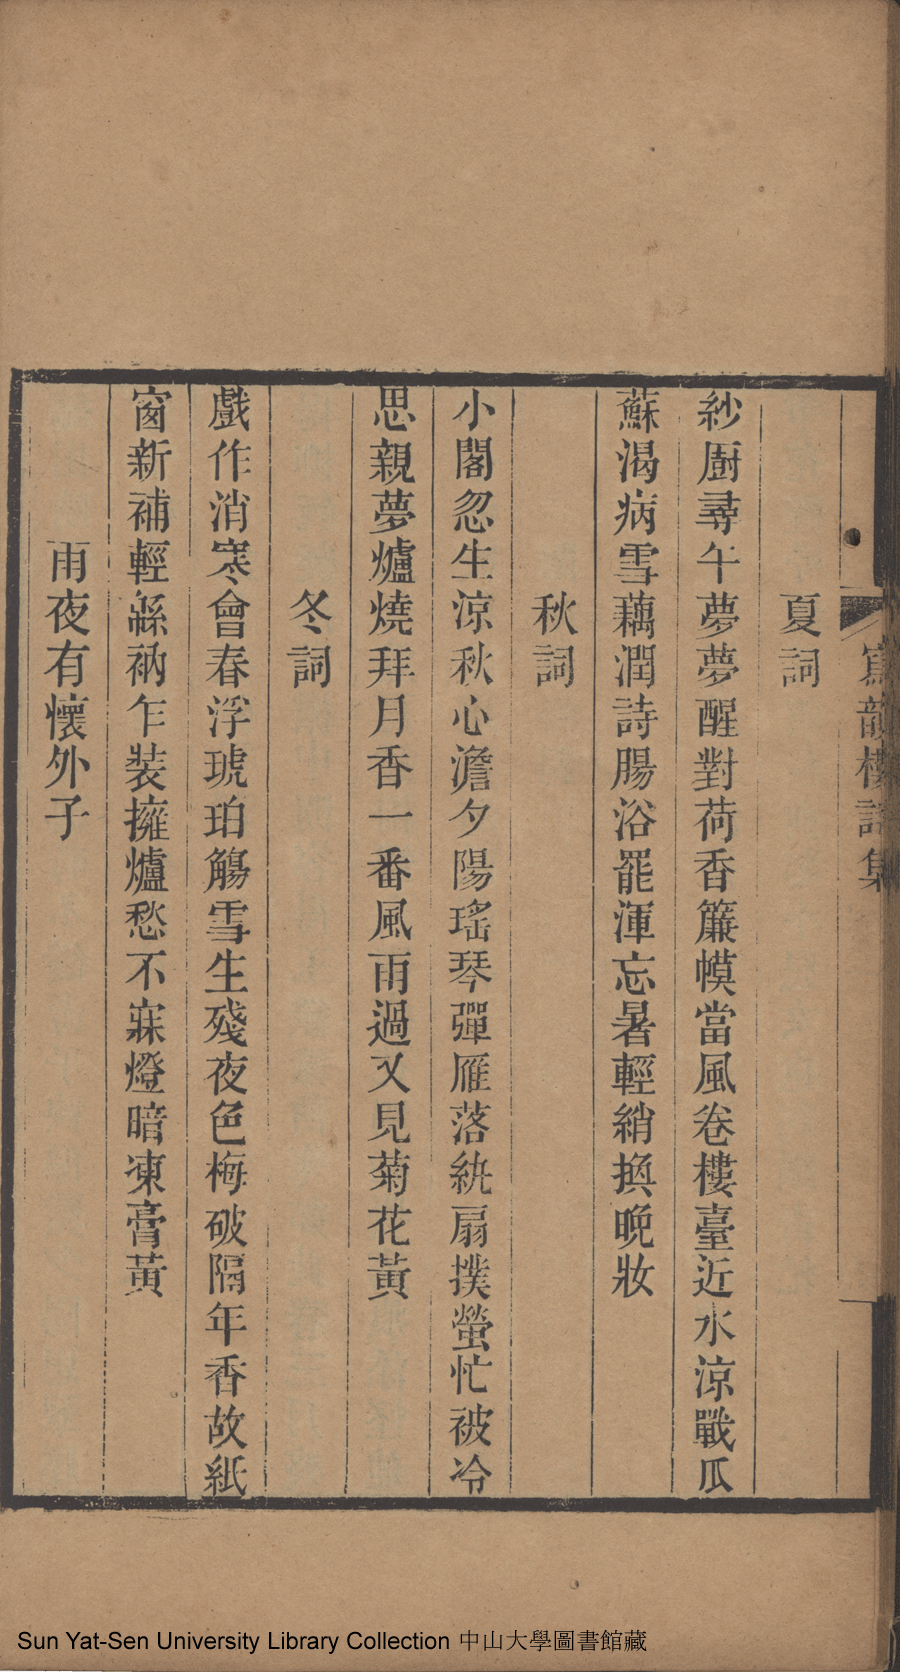 寫韻樓詩集
夏詞
紗厨尋午夢夢醒對荷香簾幙當風卷樓臺近水涼戰瓜
蘇渴病雪藕潤詩腸浴罷渾忘暑輕綃換晚妝
秋詞
小閣忽生涼秋心澹夕陽瑤琴彈雁落紈扇撲螢忙被冷
思親夢爐燒拜月香一番風雨過又見菊花黃
冬詞
戲作消寒會春浮琥珀觴雪生殘夜色梅破隔年香故紙
窗新補輕緜衲乍裝擁爐愁不寐燈暗凍膏黃
雨夜有懷外子
Sun Yat-Sen University Library Collection 中山大學圖書館藏